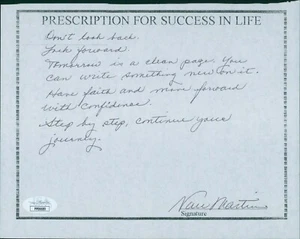 PRESCRIPTION FOR SUCCESS IN LIFE
Don't look back.
Look forward.
Tomorrow is a clean page. You
can write something new on it.
Have faith and move forward
with confidence.
Step by step, continue your
journey.
Martin
Signature